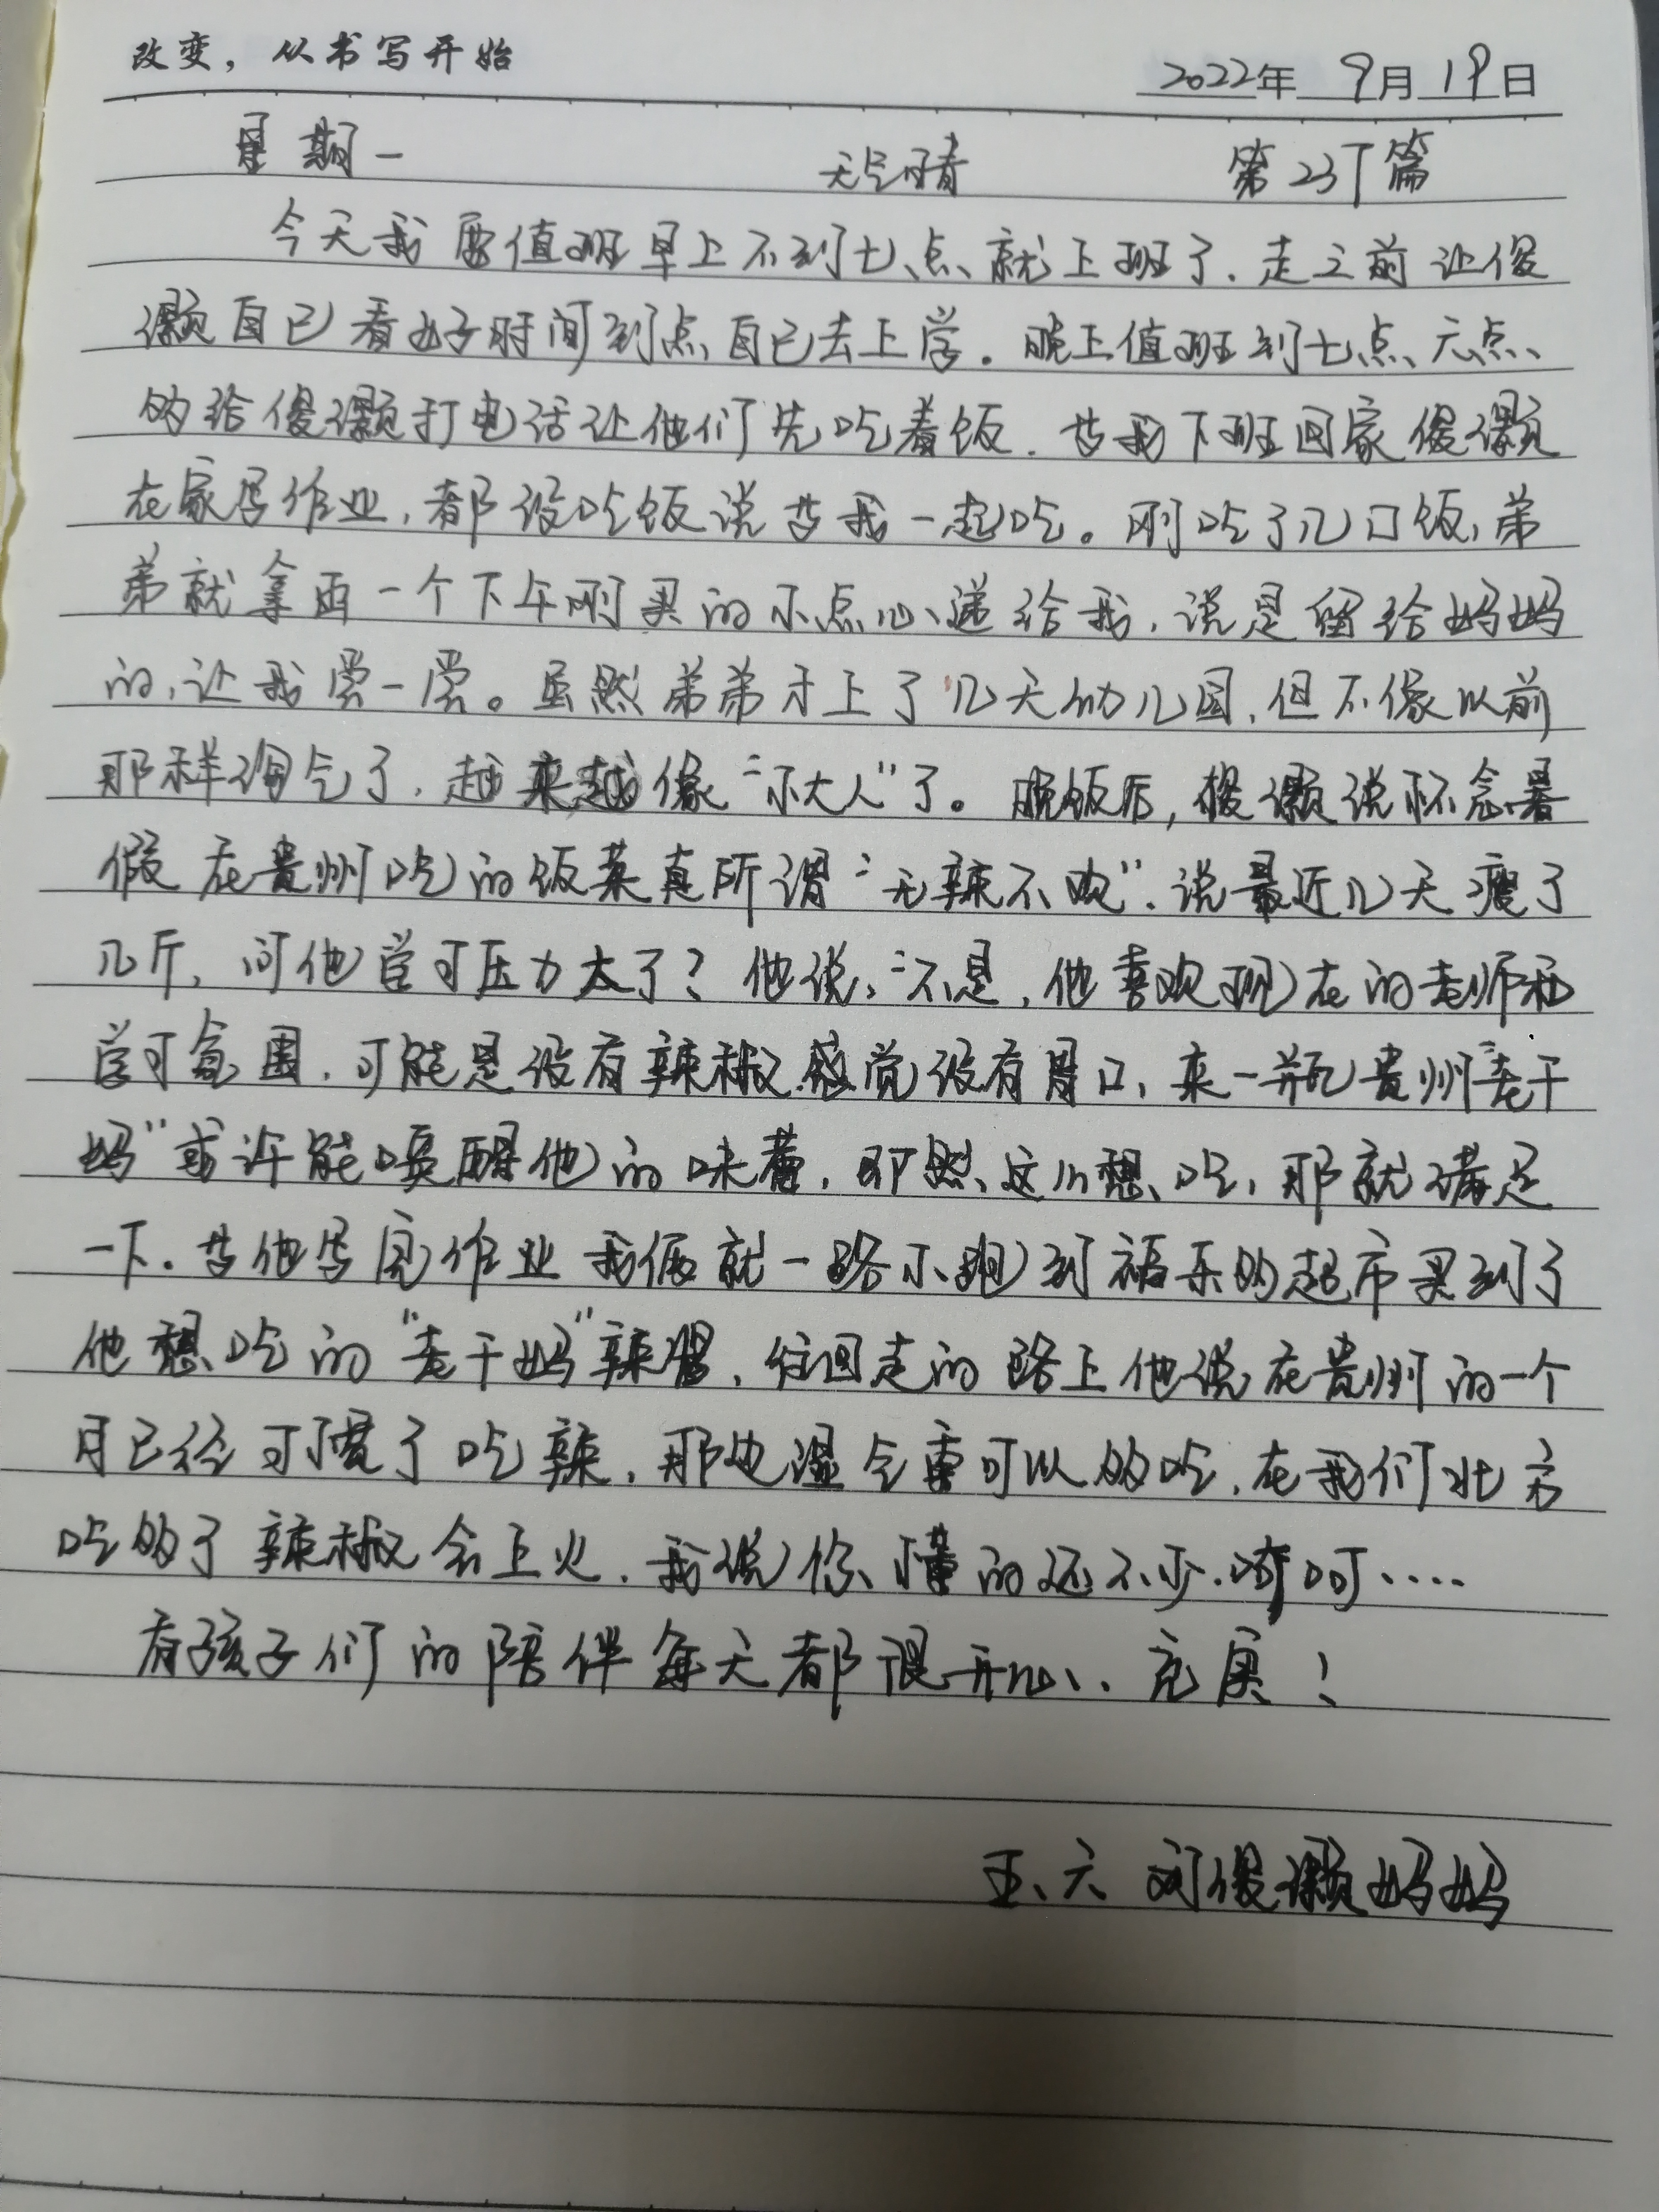 改变，从书写开始
2022年 9月 19日
星期一 天气晴 第237篇
今天我要值班早上不到七点就上班了，走之前让俊
灏自己看好时间到点自己去上学。晚上值班到七点，六点
的给俊灏打电话让他们先吃着饭，等我下班回家俊灏
在家写作业，都没吃饭说等我一起吃。刚吃了几口饭，弟
弟就拿出一个下午刚买的小点心递给我，说是留给妈妈
的，让我尝一尝。虽然弟弟才上了几天幼儿园，但不像以前
那样淘气了，越来越像“小大人”了。晚饭后，俊灏说怀念暑
假在贵州吃的饭菜真所谓“无辣不欢”，说最近几天瘦了
几斤，问他学习压力大了？他说：“不是，他喜欢现在的老师和
学习氛围，可能是没有辣椒感觉没有胃口，来一瓶贵州“老干
妈”或许能唤醒他的味蕾，即然这么想吃，那就满足
一下。等他写完作业我俩就一路小跑到福乐的超市买到了
他想吃的“老干妈”辣酱，往回走的路上他说在贵州的一个
月已经习惯了吃辣，那地湿气重可以多吃，在我们北方
吃多了辣椒会上火，我说你懂的还不少，呵呵....
有孩子们的陪伴每天都很开心、充实！
五、六 刘俊灏妈妈